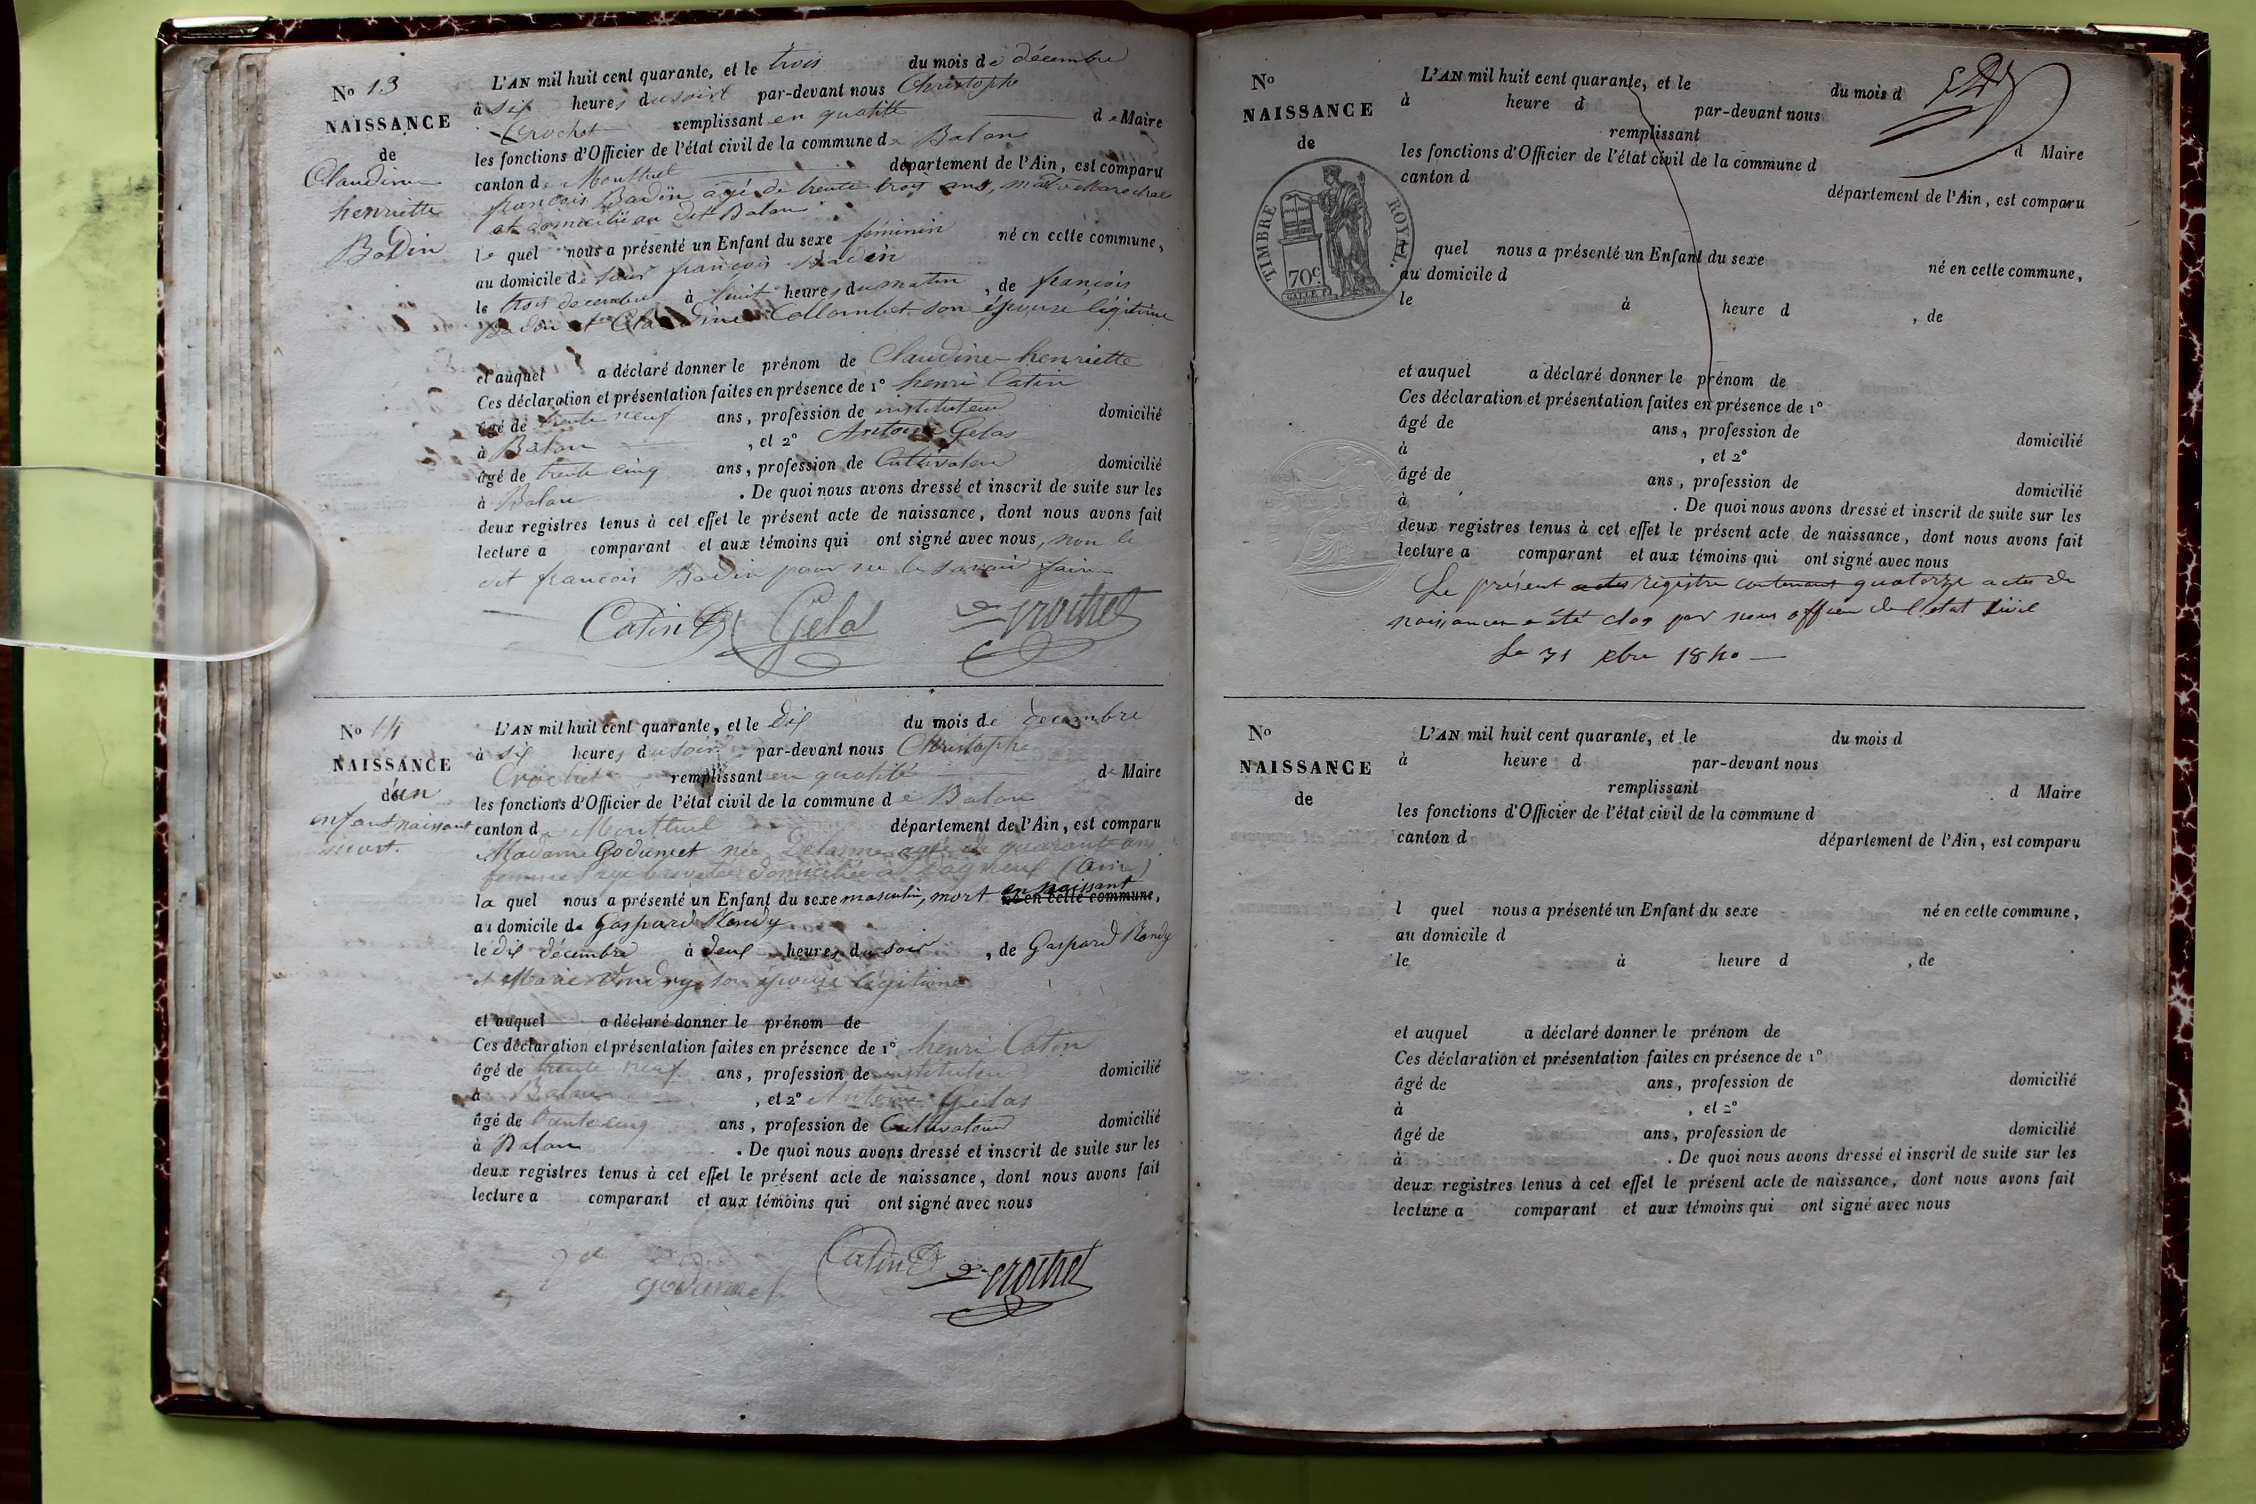 No 13
NAISSANCE
de
Claudine
henriette
Badin
L'AN mil huit cent quarante, et le trois du mois de décembre
à six heures du soir par-devant nous Christophe
Crochet remplissant en qualité de Maire
les fonctions d'Officier de l'état civil de la commune de Balan
canton de Montluel département de l'Ain, est comparu
françois Badin agé de trente trois ans, Marechal
et domicilié au dit Balan
le quel nous a présenté un Enfant du sexe féminin né en cette commune,
au domicile de françois Badin
le trois decembre à huit heures du matin, de françois
Badin et Claudine Collombet son épouse légitime
et auquel a déclaré donner le prénom de Claudine henriette
Ces déclaration et présentation faites en présence de 1° henri Catin
âgé de trente neuf ans, profession de instituteur domicilié
à Balan, et 2° Antoine Gelas
âgé de trente cinq ans, profession de Cultivateur domicilié
à Balan. De quoi nous avons dressé et inscrit de suite sur les
deux registres tenus à cet effet le présent acte de naissance, dont nous avons fait
lecture a comparant et aux témoins qui ont signé avec nous, non le
dit françois Badin pour ne le savoir faire
Catin Gelas Crochet
No 14
NAISSANCE
d'un
enfant naissant
mort.
L'AN mil huit cent quarante, et le dix du mois de decembre
à six heures du soir par-devant nous Christophe
Crochet remplissant en qualité de Maire
les fonctions d'Officier de l'état civil de la commune de Balan
canton de Montluel département de l'Ain, est comparu
Madame Godumet née agée de quarante ans
femme domiciliée à Dagneux (Ain)
la quel nous a présenté un Enfant du sexe masculin, mort en naissant né en cette commune,
au domicile de Gaspard Rondy
le dix décembre à deux heures du soir, de Gaspard Rondy
et Marie son épouse légitime
et auquel a déclaré donner le prénom de
Ces déclaration et présentation faites en présence de 1° henri Catin
âgé de trente neuf ans, profession de instituteur domicilié
à Balan, et 2° Antoine Gelas
âgé de trente cinq ans, profession de Cultivateur domicilié
à Balan. De quoi nous avons dressé et inscrit de suite sur les
deux registres tenus à cet effet le présent acte de naissance, dont nous avons fait
lecture a comparant et aux témoins qui ont signé avec nous
godumet Catin Crochet
No
NAISSANCE
de
TIMBRE ROYAL.
70c.
L'AN mil huit cent quarante, et le du mois d
à heure d par-devant nous
remplissant d Maire
les fonctions d'Officier de l'état civil de la commune d
canton d département de l'Ain, est comparu
l quel nous a présenté un Enfant du sexe né en cette commune,
au domicile d
le à heure d, de
et auquel a déclaré donner le prénom de
Ces déclaration et présentation faites en présence de 1°
âgé de ans, profession de domicilié
à, et 2°
âgé de ans, profession de domicilié
à. De quoi nous avons dressé et inscrit de suite sur les
deux registres tenus à cet effet le présent acte de naissance, dont nous avons fait
lecture a comparant et aux témoins qui ont signé avec nous
Le présent actes registre contenant quatorze actes de
naissances a été clos par nous officier de l'état civil
Le 31 xbre 1840
No
NAISSANCE
de
L'AN mil huit cent quarante, et le du mois d
à heure d par-devant nous
remplissant d Maire
les fonctions d'Officier de l'état civil de la commune d
canton d département de l'Ain, est comparu
l quel nous a présenté un Enfant du sexe né en cette commune,
au domicile d
le à heure d, de
et auquel a déclaré donner le prénom de
Ces déclaration et présentation faites en présence de 1°
âgé de ans, profession de domicilié
à, et 2°
âgé de ans, profession de domicilié
à. De quoi nous avons dressé et inscrit de suite sur les
deux registres tenus à cet effet le présent acte de naissance, dont nous avons fait
lecture a comparant et aux témoins qui ont signé avec nous